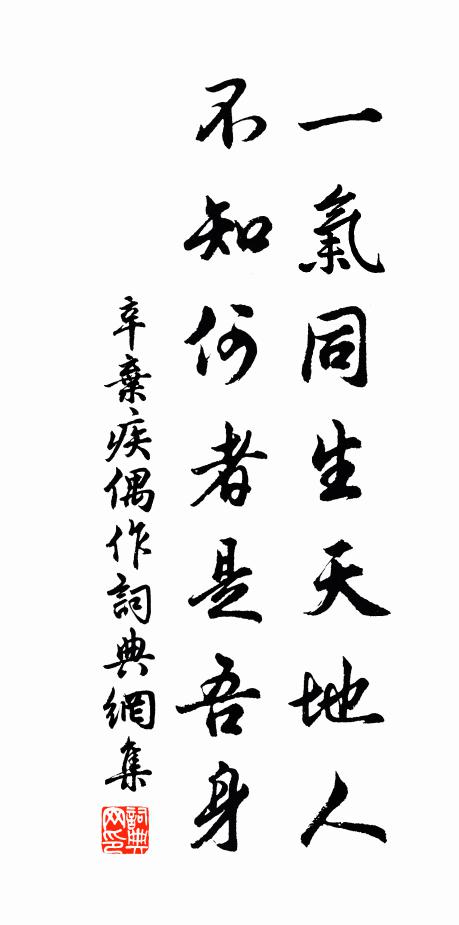 一氣同生天地人
不知何者是吾身
辛棄疾偶作詞典網集
詞典网印